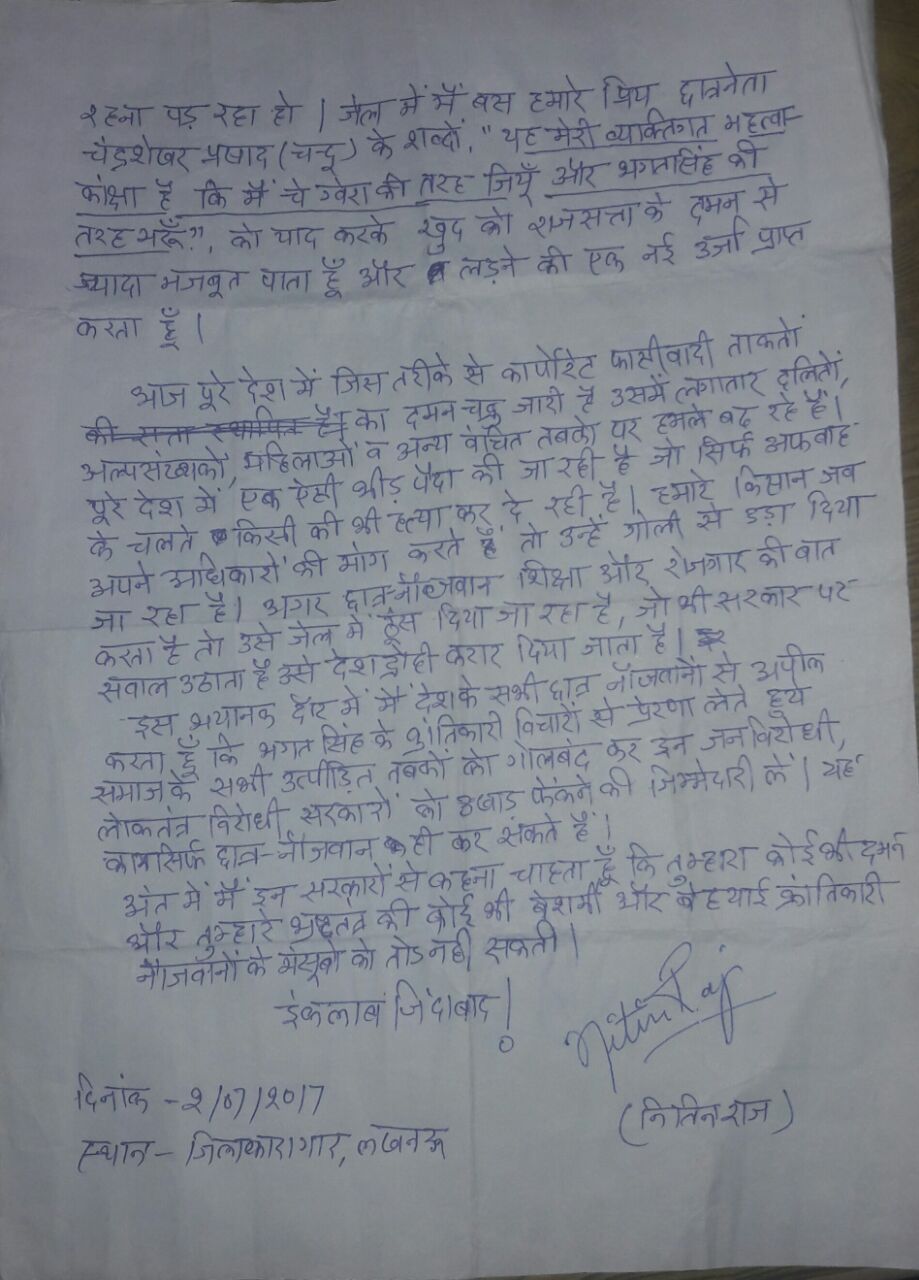 रहना पड़ रहा हो । जेल में मैं बस हमारे प्रिय छात्रनेता
चंद्रशेखर प्रसाद (चन्दू) के शब्दों, "यह मेरी व्यक्तिगत महत्वा-
कांक्षा है कि मैं चे ग्वेरा की तरह जियूँ और भगतसिंह की
तरह मरूँ", को याद करके खुद को राजसत्ता के दमन से
ज्यादा मजबूत पाता हूँ और लड़ने की एक नई उर्जा प्राप्त
करता हूँ ।
आज पूरे देश में जिस तरीके से कार्पोरेट फासीवादी ताकतों
की सत्ता स्थापित है का दमन चक्र जारी है उसमें लगातार दलितों,
अल्पसंख्यकों, महिलाओं व अन्य वंचित तबको पर हमले बढ़ रहे हैं।
पूरे देश में एक ऐसी भीड़ पैदा की जा रही है जो सिर्फ अफवाह
के चलते किसी की भी हत्या कर दे रही है। हमारे किसान जब
अपने अधिकारों की मांग करते हैं तो उन्हें गोली से उड़ा दिया
जा रहा है। अगर छात्र-नौजवान शिक्षा और रोजगार की बात
करता है तो उसे जेल में ठूंस दिया जा रहा है, जो भी सरकार पर
सवाल उठाता है उसे देशद्रोही करार दिया जाता है।
इस भयानक दौर में मैं देश के सभी छात्र नौजवानों से अपील
करता हूँ कि भगत सिंह के क्रांतिकारी विचारों से प्रेरणा लेते हुये
समाज के सभी उत्पीड़ित तबकों को गोलबंद कर इन जनविरोधी,
लोकतंत्र विरोधी सरकारों को उखाड़ फेंकने की जिम्मेदारी लें। यह
काम सिर्फ छात्र-नौजवान ही कर सकते हैं।
अंत में मैं इन सरकारों से कहना चाहता हूँ कि तुम्हारा कोई भी दमन
और तुम्हारे भ्रष्टतंत्र की कोई भी बेशर्मी और बेहयाई क्रांतिकारी
नौजवानों के मंसूबो को तोड नही सकती।
इंकलाब जिंदाबाद!
Nitin Raj
(नितिन राज)
दिनांक - 2/07/2017
स्थान - जिलाकारागार, लखनऊ